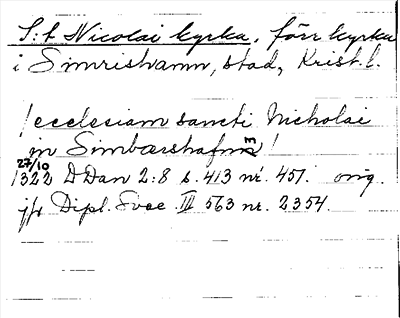 S:t Nicolai kyrka, förr kyrka
i Simrishamn, stad, Krist. l.
/ ecclesiam sancti Nicholai
in Simbœrshafnm /
27/10
1322 DDan 2:8 s. 413 nr. 451. orig.
jfr Dipl. Svec. III 563 nr. 2354.